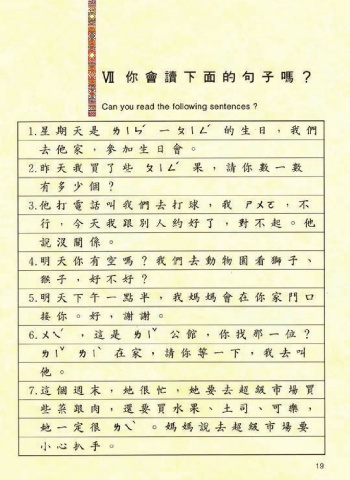 Ⅶ 你會讀下面的句子嗎？
Can you read the following sentences ?
1.星期天是 ㄌㄧㄣˊ 一ㄆㄧㄥˊ 的生日，我們
去他家，參加生日會。
2.昨天我買了些 ㄆㄧㄥˊ 果，請你數一數
有多少個？
3.他打電話叫我們去打球，我 ㄕㄨㄛ，不
行，今天我跟別人約好了，對不起。他
說沒關係。
4.明天你有空嗎？我們去動物園看獅子、
猴子，好不好？
5.明天下午一點半，我媽媽會在你家門口
接你。好，謝謝。
6.ㄨㄟˊ，這是 ㄌㄧˇ 公館，你找那一位？
ㄌㄧˇ ㄌㄧˋ 在家，請你等一下，我去叫
他。
7.這個週末，她很忙，她要去超級市場買
些菜跟肉，還要買水果、土司、可樂，
她一定很 ㄌㄟˋ。媽媽說去超級市場要
小心扒手。
19